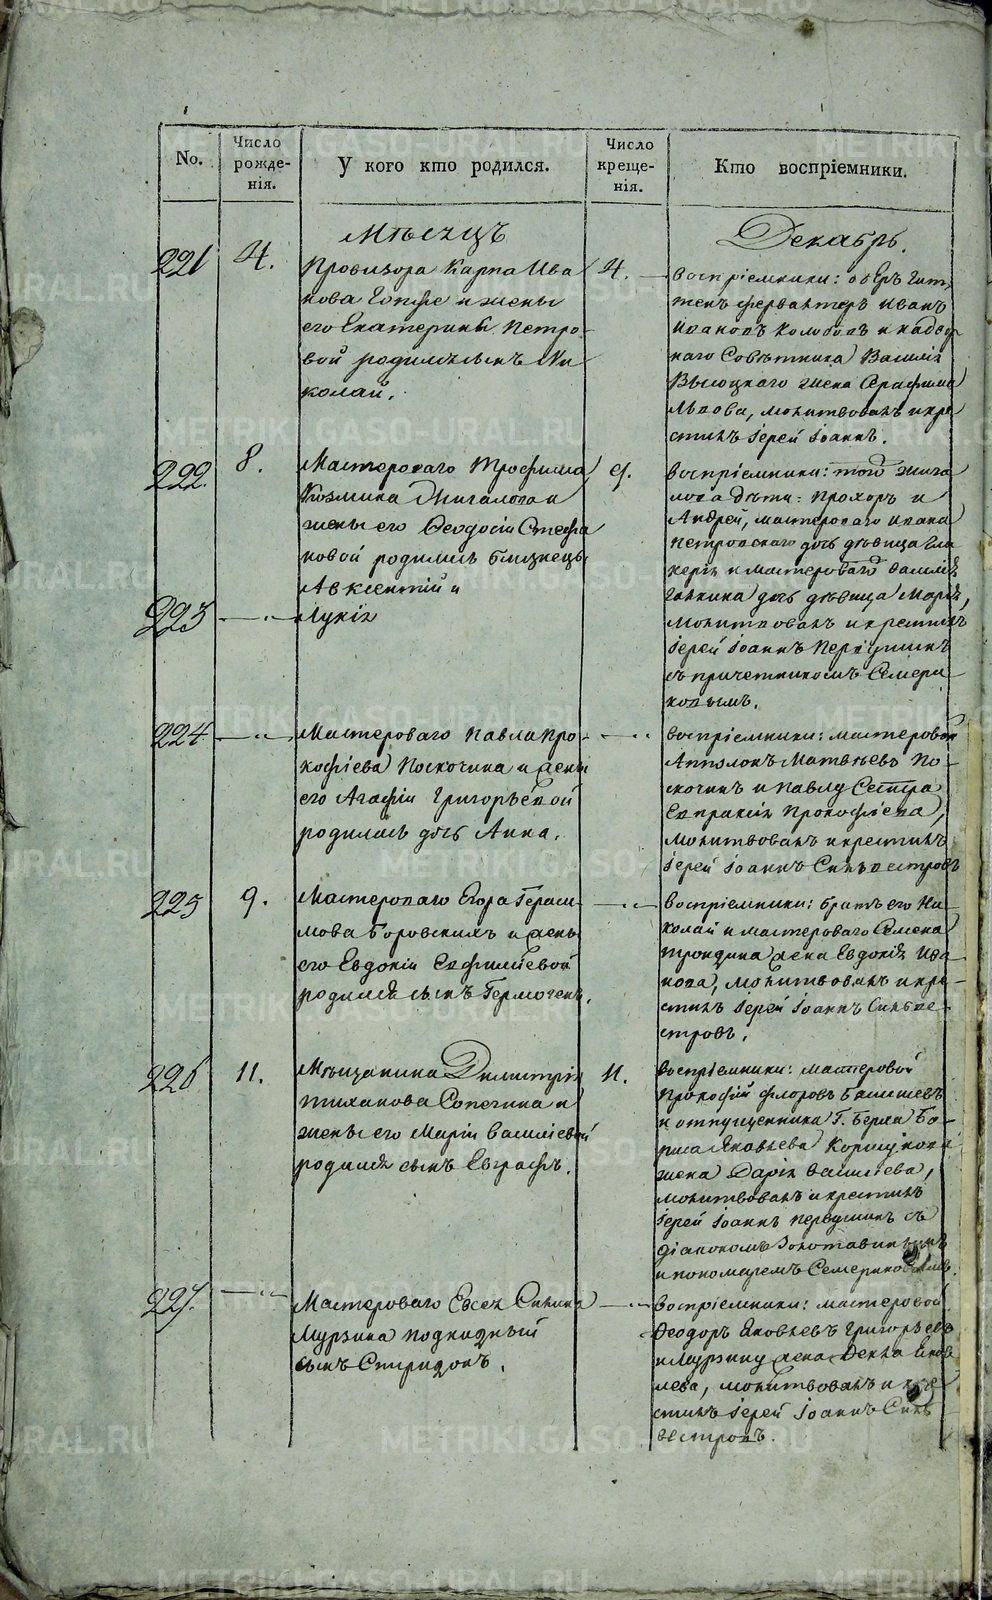 No.
Число
рожде-
нія.
У кого кто родился.
Число
креще-
нія.
Кто воспріемники.
Мѣсяцъ
Декабрь.
221
4.
Провизора Карпа Ива
нова Гопфе и жены
его Екатерины Петро-
вой родился сынъ Ни
колай.
4.
Воспріемники: оберъ гит-
тенъ ферваптеръ Иванъ
Ивановъ Колобовъ и надвор
наго Совѣтника Василія
Высоцкаго жена Серафима
Львова, молитвовалъ и кре
стилъ Іерей Іоаннъ.
222.
8.
Мастероваго Трофима
Козмина Жигалова и
жены его Феодосіи Стефа
новой родились близнецы
Авксентій и
9.
Воспріемники: того Жига
лова дѣти: Прохоръ и
Андрей, мастероваго Ивана
Петровскаго дочь дѣвица Гла
керія и мастероваго Василія
Галкина дочь дѣвица Марія,
молитвовалъ и крестилъ
Іерей Іоаннъ Первушинъ
съ причетникомъ Семери
ковымъ.
223
Лукія
224
Мастероваго Павла Про
кофіева Поскочина и жены
его Агафіи Григорьевой
родилась дочь Анна.
Воспріемники: мастеровой
Апполонъ Матвѣевъ По-
скочинъ и Павлу Сестра
Евпраксія Прокофіева,
молитвовалъ и крестилъ
Іерей Іоаннъ Сильвестровъ
225
9.
Мастероваго Егора Гераси-
мова Боровскихъ и жены
его Евдокіи Евфиміевой
родился сынъ Гермогенъ.
Воспріемники: братъ его Ни
колай и мастероваго Семена
Трондина жена Евдокія Ива
нова, молитвовалъ и кре-
стилъ Іерей Іоаннъ Сильве-
стровъ.
226
11.
Мѣщанина Димитрія
Тиханова Сопегина и
жены его Маріи Василіевой
родился сынъ Евграфъ.
11.
Воспріемники: мастеровой
Прокофій Флоровъ
и отпущенника Г. Берга Бо-
риса Яковлева
жена Дарія Васильева,
молитвовалъ и крестилъ
Іерей Іоаннъ Первушинъ съ
діакономъ Золотавинымъ
и пономаремъ Семериковымъ.
227.
Мастероваго Евсея Силина
Мурзина подкидный
сынъ Спиридонъ.
Воспріемники: мастеровой
Феодоръ Яковлевъ Григорьевъ
и Мурзину жена Фекла Яков
лева, молитвовалъ и кре
стилъ Іерей Іоаннъ Силь
вестровъ.
METRIKI.GASO-URAL.RU